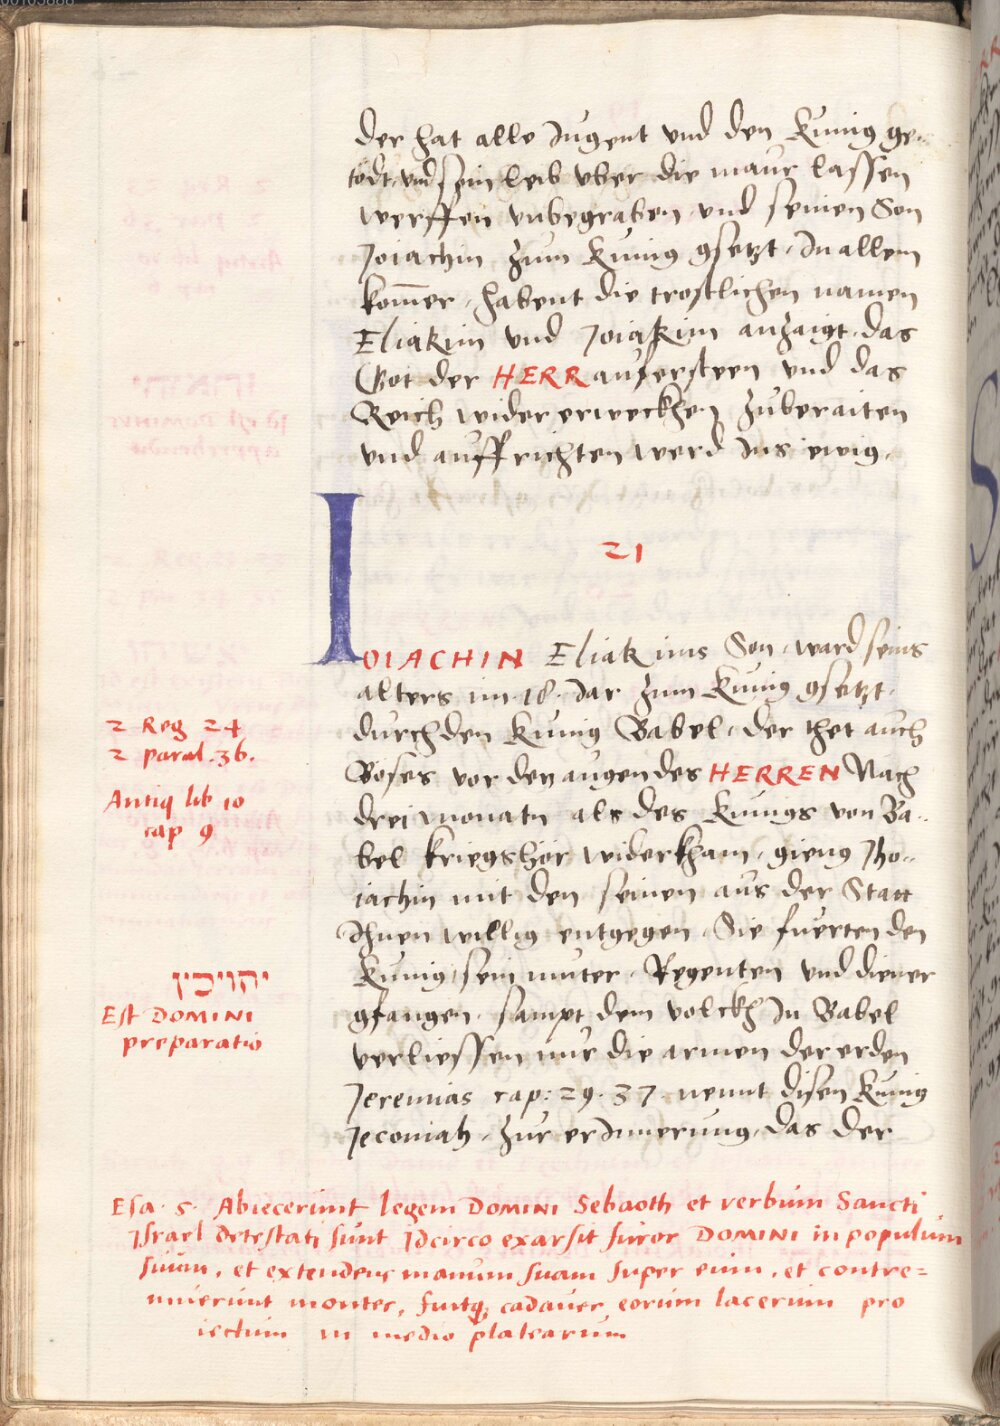 der hat alle Jugent vnd den Kunig ge-
tödt, vnd sein leib vber die maur lassen
werffen vnbegraben, vnd seinen Son
Joiachin zum Kunig gsetzt. In allem
kom̄er, habent die trostlichen namen
Eliakim vnd Joiakim anzaigt, das
Got der HERR aufersteen vnd das
Reich wider erweckhen zuberaiten
vnd auffrichten werd Ins ewig.
21
IOIACHIN Eliakims Son, ward seins
alters im .18. Jar zum Kunig gsetzt.
durch den Kunig Babel, der thet auch
Boses vor den augen des HERREN Nach
drei monatn als des Kunigs von Ba-
bel kriegshör widerkham, gieng Jho-
iachin mit den seinen aus der Statt
Ihnen willig entgegen. Sie fuerten den
Kunig, sein muter, Regenten vnd diener
gfangen, sampt dem volckh In Babel
verliessen nur die armen der erden
Jeremias cap: 29. 37 nennt disen Kunig
Jeconiah, zur erInnerung, das der
2 Reg 24
2 paral. 36.
Antiq lib 10
cap 9
יהויכין
Est DOMINI
preparatio
Esa. 5. Abiecerunt legem DOMINI Sebaoth et verbum Sancti
Jsrael detestati sunt Jdcirco exarsit furor DOMINI in populum
suum, et extendens manum suam super eum, et contre=
muerunt montes, fuitq; cadauer eorum lacerum pro
iectum in medio platearum